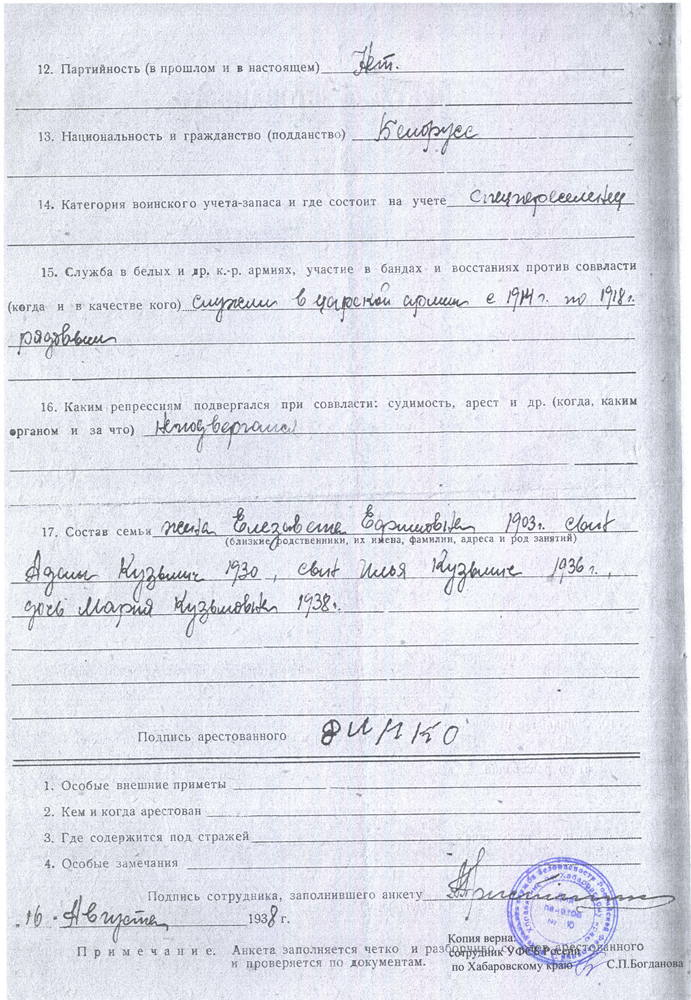 12. Партийность (в прошлом и в настоящем) Нет.
13. Национальность и гражданство (подданство) Белорусс
14. Категория воинского учета-запаса и где состоит на учете спецпереселенец
15. Служба в белых и др. к.-р. армиях, участие в бандах и восстаниях против соввласти
(когда и в качестве кого) служели в царской армии с 1914 г. по 1918 г.
рядовым
16. Каким репрессиям подвергался при соввласти: судимость, арест и др. (когда, каким
органом и за что) неподвергался
17. Состав семьи жена Елезавета Ефимовна 1903 г. сын
(близкие родственники, их имена, фамилии, адреса и род занятий)
Адам Кузьмич 1930, сын Илья Кузьмич 1936 г.,
дочь Мария Кузьмовна 1938 г.
Подпись арестованного
1. Особые внешние приметы
2. Кем и когда арестован
3. Где содержится под стражей
4. Особые замечания
Подпись сотрудника, заполнившего анкету
16 Августа 1938 г.
Примечание. Анкета заполняется четко и разборчиво со слов арестованного
и проверяется по документам.
Копия верна:
сотрудник УФСБ России
по Хабаровскому краю С.П.Богданова